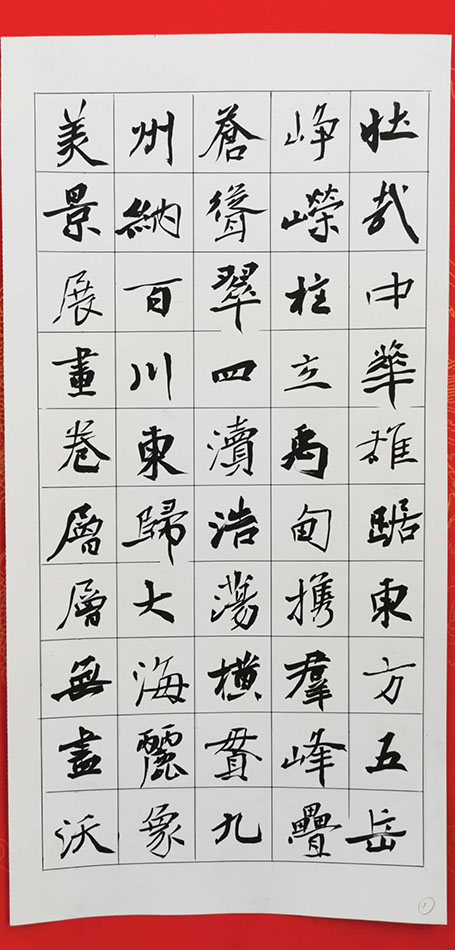 壯哉中華雄踞東方五岳
峥嶸柱立禹甸携羣峰疊
蒼聳翠四瀆浩蕩横貫九
州納百川東歸大海麗象
美景展畫卷層層無盡沃
1